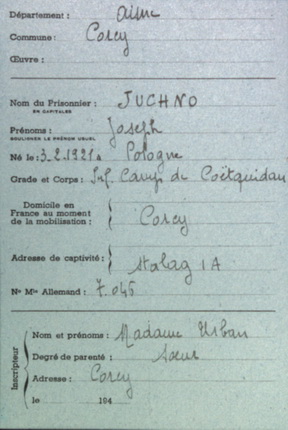 Département : Aisne
Commune : Corcy
Œuvre :
Nom du Prisonnier : JUCHNO
EN CAPITALES
Prénoms : Joseph
SOULIGNER LE PRÉNOM USUEL
Né le : 3.2.1921 à Pologne
Grade et Corps : Inf. Camp de Coëtquidan
Domicile en France au moment de la mobilisation : Corcy
Adresse de captivité : Stalag IA
N° Mle Allemand : 7.045
Inscripteur
Nom et prénoms : Madame Urban
Degré de parenté : Soeur
Adresse : Corcy
le 194